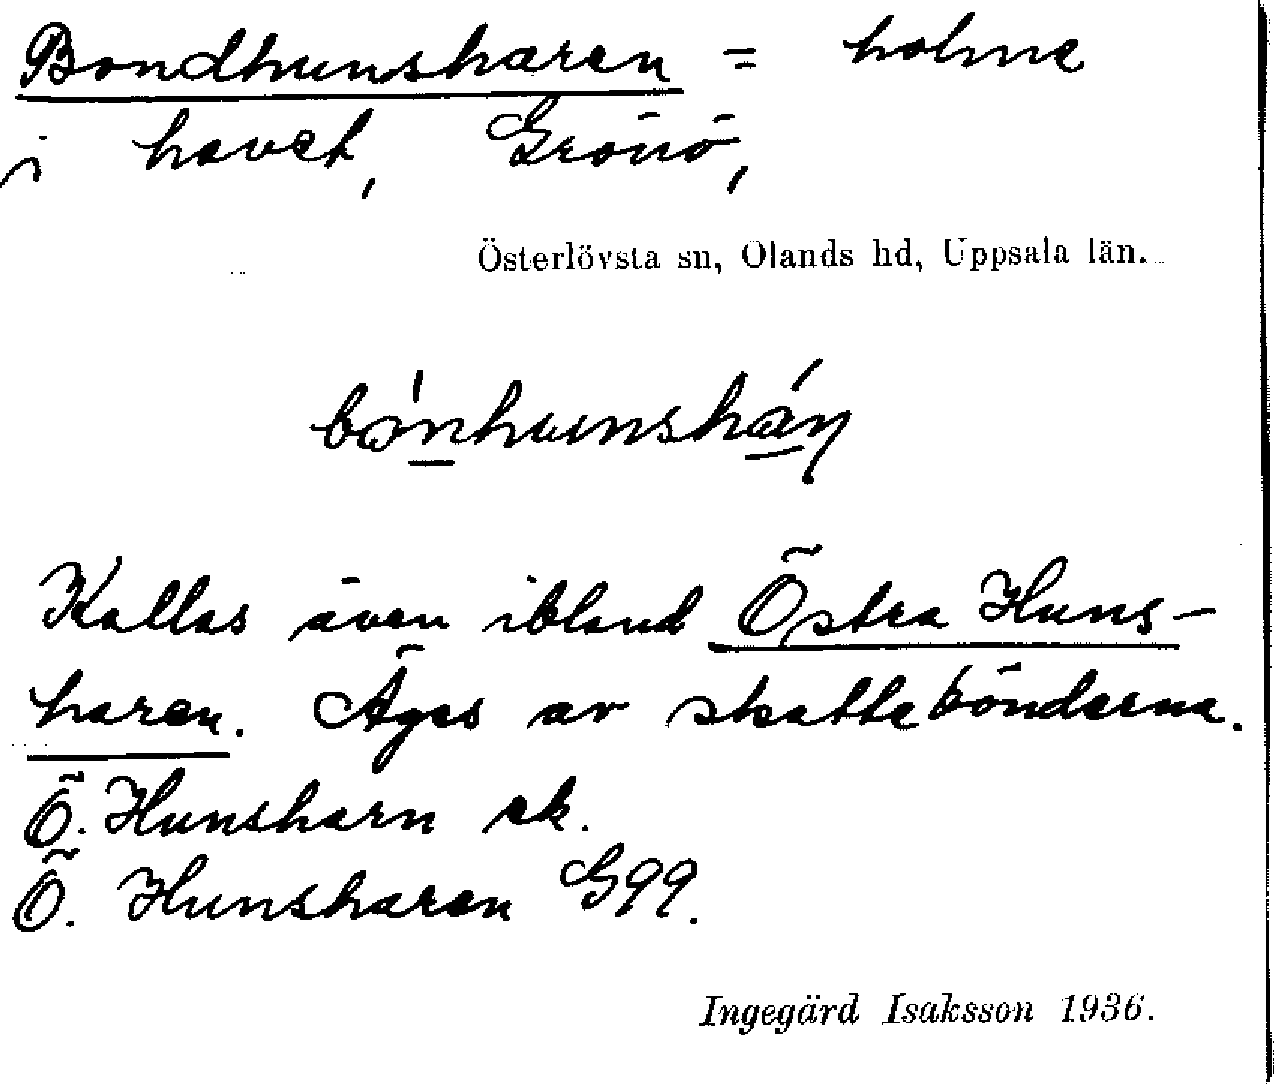 Bondhunsharen = holme
i havet, Grönö,
Österlövsta sn, Olands hd, Uppsala län.
Kallas även ibland Östra Huns-
haren. Äges av skattebönderna.
Ö. Hunsharn ek.
Ö. Hunsharen G99.
Ingegärd Isaksson 1936.